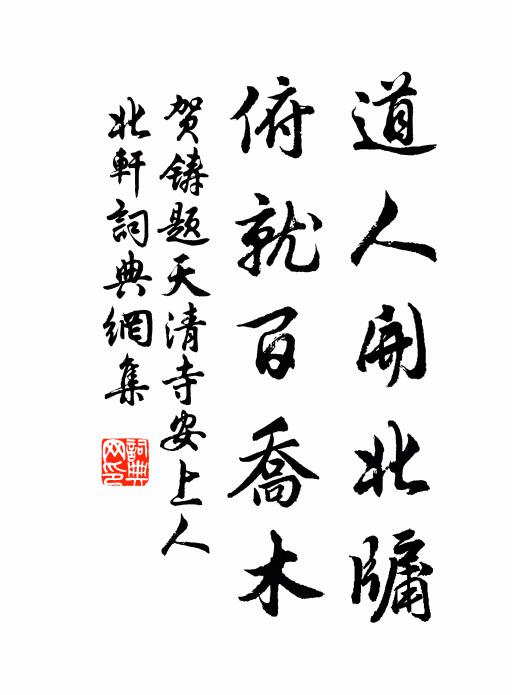 道人開北牖
俯就百喬木
賀鑄題天清寺安上人
北軒詞典網集
詞典网印